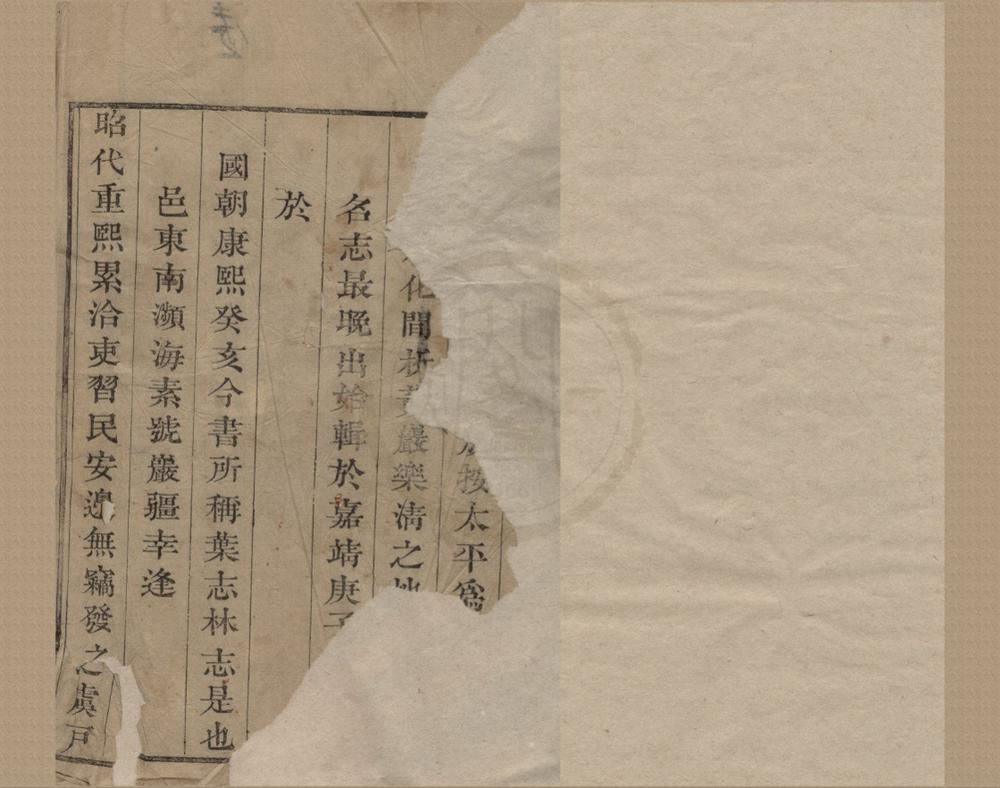 按太平爲
化間析黃巖樂清之地
名志最晚出始輯於嘉靖庚子
於
國朝康熙癸亥今書所稱葉志林志是也
邑東南瀕海素號巖疆幸逢
昭代重熙累洽吏習民安邊無竊發之虞戸